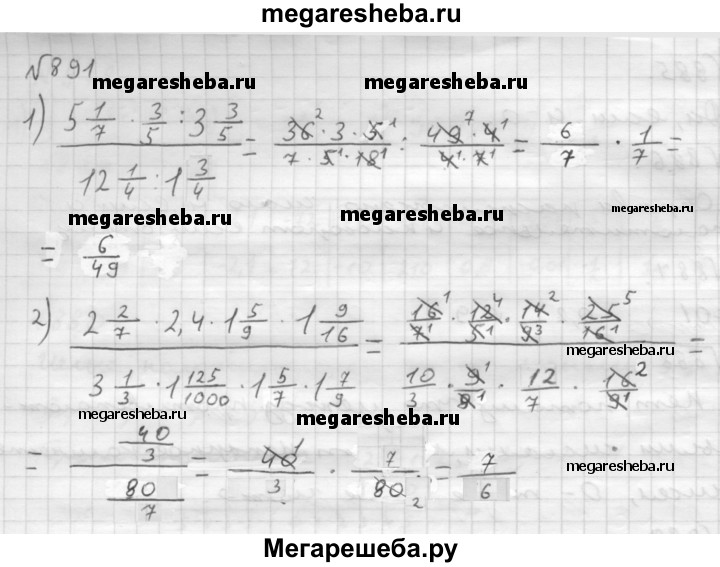 megaresheba.ru
№891
megaresheba.ru megaresheba.ru
1) (5 1/7 · 3/5 : 3 3/5) / (12 1/4 : 1 3/4) = (36² · 3 · 5¹) / (7 · 5¹ · 18¹) : (49⁷ · 4¹) / (4¹ · 7¹) = 6/7 · 1/7 =
megaresheba.ru megaresheba.ru megaresheba.ru
= 6/49
2) (2 2/7 · 2,4 · 1 5/9 · 1 9/16) / (3 1/3 · 1 125/1000 · 1 5/7 · 1 7/9) = (16¹/7¹ · 12⁴/5¹ · 14²/9³ · 25⁵/16¹) / (10/3 · 9¹/8¹ · 12/7 · 16²/9¹) =
megaresheba.ru
megaresheba.ru megaresheba.ru
= (40/3) / (80/7) = 40¹/3 · 7/80₂ = 7/6
megaresheba.ru megaresheba.ru
Мегарешеба.ру